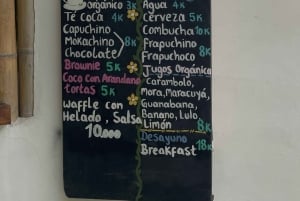 orgánico 3K
Té Coca 4K
Capuchino
Mokachino 8K
Chocolate
Brownie 5K
Coco con Arandano
tortas 5K
Waffle con
Helado, Salsa
10.000
Agua 4K
Cerveza 5K
Combucha 10K
Frapuchino
Frapuchoco 8K
Jugos Orgánica
Carambolo,
Mora, Maracuyá,
Guanabana,
Banano, Lulo
Limón 8K
Desayuno
Breakfast 18K